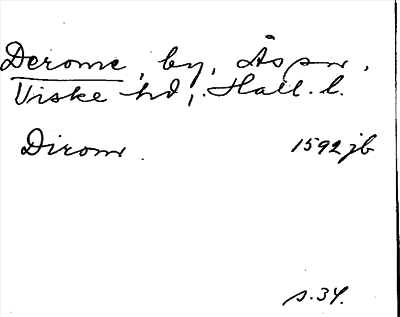 Derome, by, Ås sn,
Viske hd, Hall. l.
Dirom 1592 jb
s. 34.